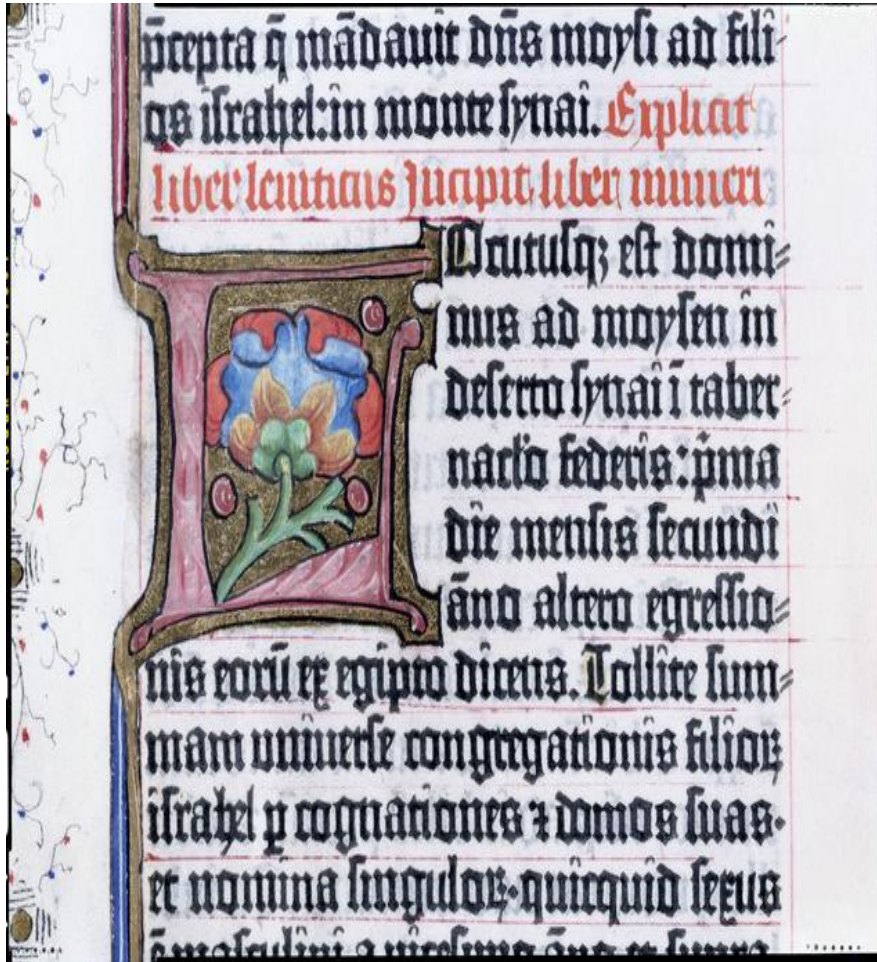 p̄cepta q̄ mādauit dn̄s moysi ad fili-
os israhel: in monte synai. Explicit
liber leuiticus Incipit liber numeri
LOcutusqꝫ est domi⸗
nus ad moysen in
deserto synai ī taber⸗
nac̄lo federis: p̄ma
die mensis secundi
āno altero egressio⸗
nis eorū ex egipto dicens. Tollite sum⸗
mam uniuerse congregationis filioꝝ
israhel ꝑ cognationes ⁊ domos suas.
et nomina singuloꝝ. quicquid sexus
ē masculini a uicesimo āno et supra